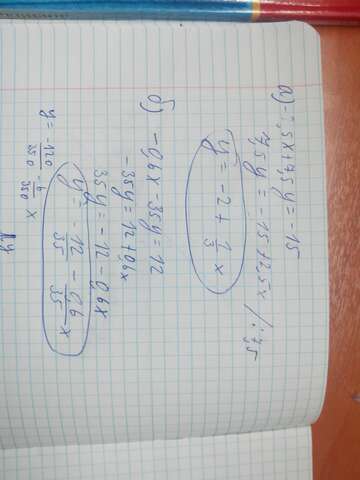 а) -2,5x+7,5y=-15
7,5y = -15+2,5x /:7,5
y = -2 + 1/3 x
б) -0,6x-35y=12
-35y=12+0,6x
35y=-12-0,6x
y = -12/35 - 0,6/35 x
y = -120/350 - 6/350 x